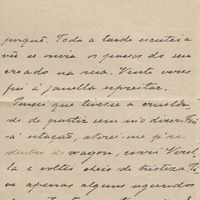 porquê. Toda a tarde escutei a
vêr se ouvia os passos do seu
creado na rua. Vinte vezes
fui á janella espreitar.
Pensei que tivesse a cruelda-
de de partir sem m'o dizer. Fui
á estação, atirei-me p'ra
dentro do wagon, corri Vizel-
la e voltei cheio de tristeza. Ti-
ve apenas alguns segundos